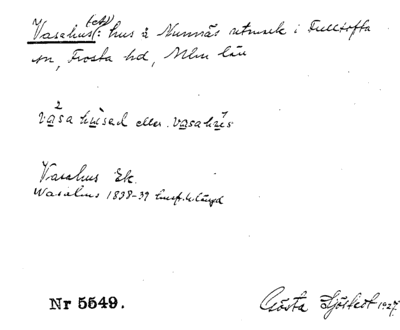 Vasahus(et): hus å Nunnäs utmark i Fulltofta
sn, Frosta hd, Mlm län
2
vasa husad eller vasahus
Vasahus Ek.
Wasahus 1838-39 husf.längd
Nr 5549.
Gösta Sjöstedt 1927.